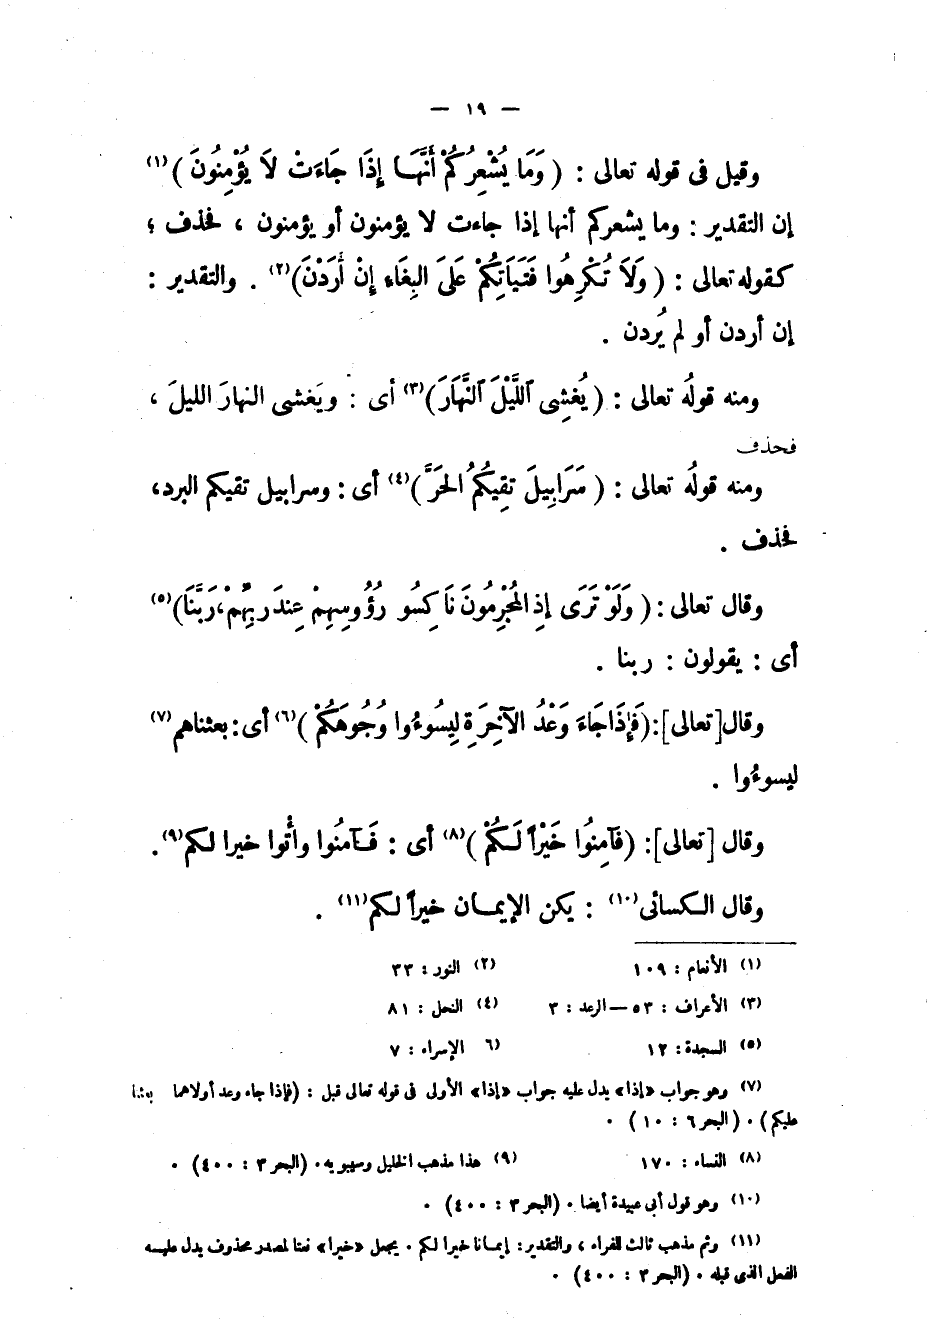 — ١٩ —
وقيل فى قوله تعالى : ( وَمَا يُشْعِرُكُمْ أَنَّهَا إِذَا جَاءَتْ لَا يُؤْمِنُونَ )(١)
إن التقدير : وما يشعركم أنها إذا جاءت لا يؤمنون أو يؤمنون ، فحذف ؛
كقوله تعالى : ( وَلَا تُكْرِهُوا فَتَيَاتِكُمْ عَلَى البِغَاءِ إِنْ أَرَدْنَ)(٢) . والتقدير :
إن أردن أو لم يُردن .
ومنه قولُه تعالى : ( يُغشِى ٱللَّيْلَ ٱلنَّهَارَ)(٣) أى : ويَغشى النهارَ الليلَ ،
فحذف
ومنه قولُه تعالى : ( سَرَابِيلَ تقِيكُمُ الحَرَّ )(٤) أى : وسرابيل تقيكم البرد،
فحذف .
وقال تعالى : ( وَلَوْ تَرَى إِذِ المُجْرِمُونَ نَاكِسُو رُؤُوسِهِمْ عِندَ رَبِّهِمْ،رَبَّنَا)(٥)
أى : يقولون : ربنا .
وقال[تعالى]:(فَإِذَا جَاءَ وَعْدُ الآخِرَةِ لِيَسُوءُوا وُجُوهَكُمْ )(٦) أى: بعثناهم(٧)
ليسوءُوا .
وقال [تعالى]: (فَآمِنُوا خَيْراً لَكُمْ )(٨) أى : فَآمنُوا وأْتُوا خيرا لكم(٩).
وقال الكسائى(١٠) : يكن الإيمان خيراً لكم(١١) .
(١) الأنعام : ١٠٩ (٢) النور : ٣٣
(٣) الأعراف : ٥٣ — الرعد : ٣ (٤) النحل : ٨١
(٥) السجدة : ١٢ ٦) الإسراء : ٧
(٧) وهو جواب «إذا» يدل عليه جواب «إذا» الأولى فى قوله تعالى قبل : (فإذا جاء وعد أولاهما بعثنا
عليكم) . (البحر ٦ : ١٠ ) .
(٨) النساء : ١٧٠ (٩) هذا مذهب الخليل وسيبويه. (البحر ٣ : ٤٠٠) .
(١٠) وهو قول أبى عبيدة أيضا . (البحر ٣ : ٤٠٠) .
(١١) وثم مذهب ثالث للفراء ، والتقدير : إيمانا خيرا لكم . يجعل «خيرا» نعتا لمصدر محذوف يدل عليسه
الفعل الذى قبله . (البحر ٣ : ٤٠٠) .